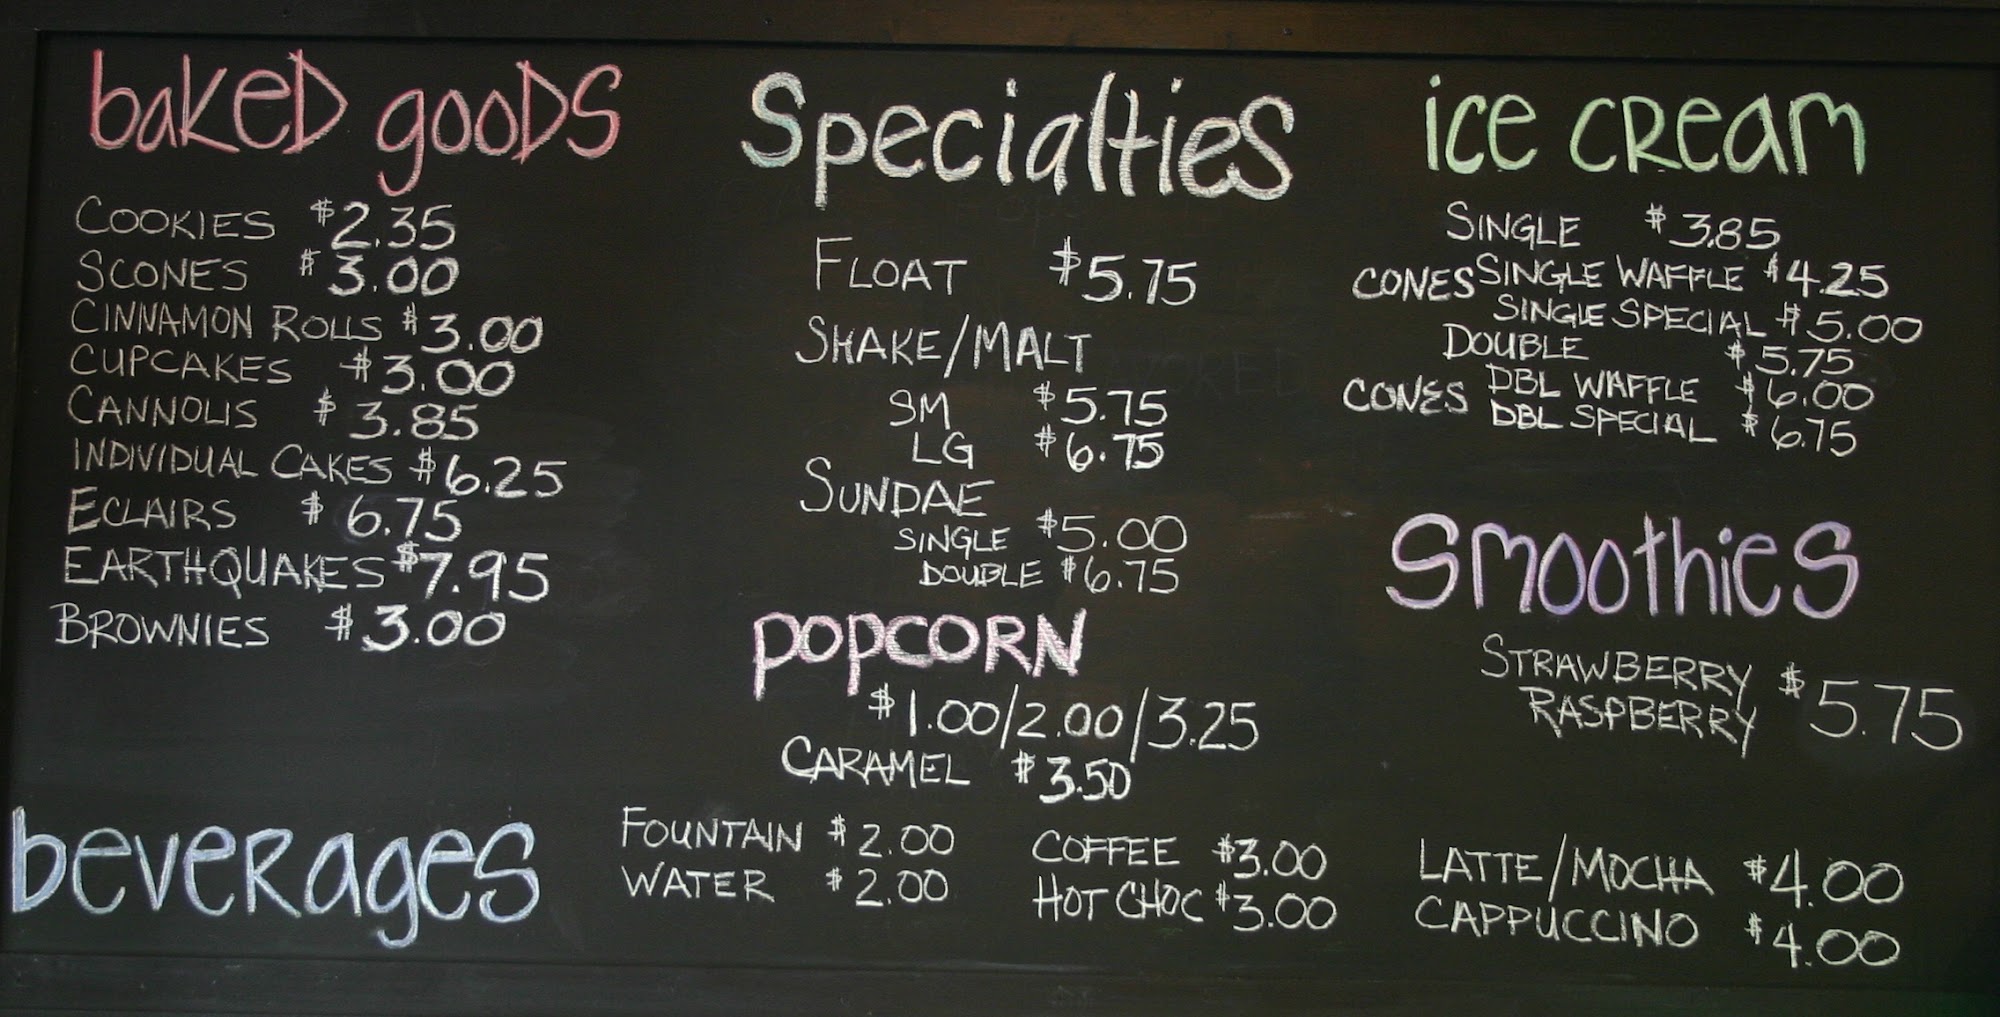 baked goods
COOKIES $2.35
SCONES $3.00
CINNAMON ROLLS $3.00
CUPCAKES $3.00
CANNOLIS $3.85
INDIVIDUAL CAKES $6.25
ECLAIRS $6.75
EARTHQUAKES $7.95
BROWNIES $3.00
Specialties
FLOAT $5.75
SHAKE/MALT
SM $5.75
LG $6.75
SUNDAE
SINGLE $5.00
DOUBLE $6.75
POPCORN
$1.00/2.00/3.25
CARAMEL $3.50
ice cream
SINGLE $3.85
CONES SINGLE WAFFLE $4.25
SINGLE SPECIAL $5.00
DOUBLE $5.75
CONES DBL WAFFLE $6.00
DBL SPECIAL $6.75
Smoothies
STRAWBERRY $5.75
RASPBERRY
beverages
FOUNTAIN $2.00
WATER $2.00
COFFEE $3.00
HOT CHOC $3.00
LATTE/MOCHA $4.00
CAPPUCCINO $4.00